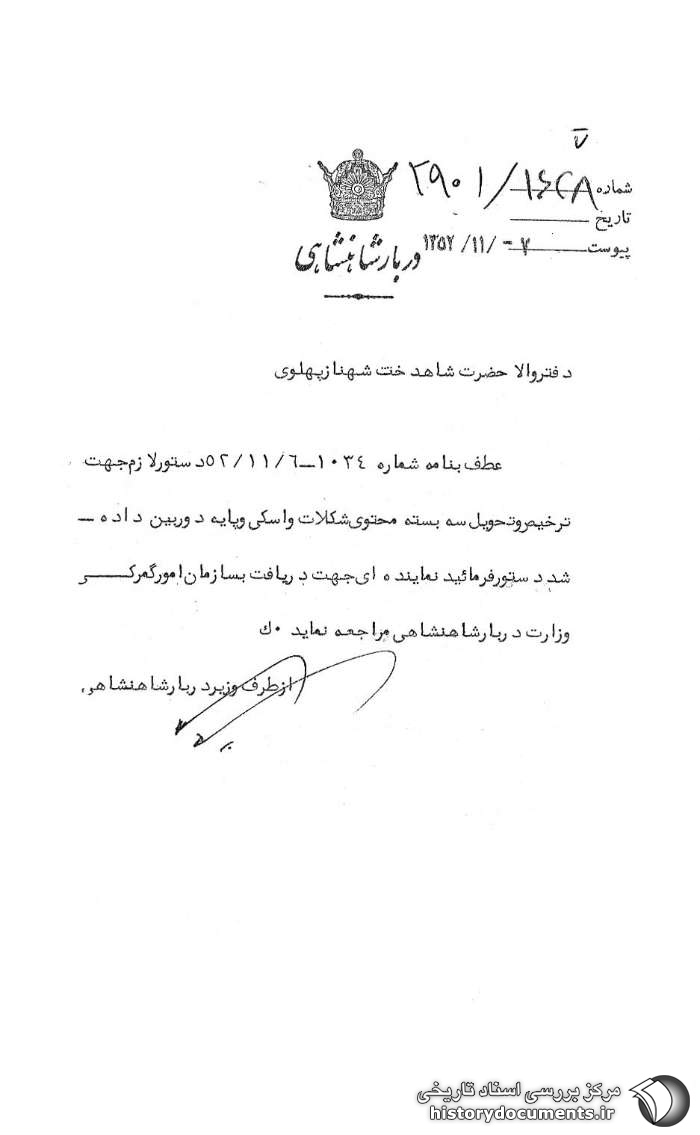 شماره ۲۹۰۱/
تاریخ
پیوست ۷-/۱۱/۱۳۵۲
دربار شاهنشاهی
دفتر والا حضرت شاهدخت شهناز پهلوی
عطف بنامه شماره ۱۰۳۴ـ۵۲/۱۱/۶ دستور لازم جهت
ترخیص وتحویل سه بسته محتوی شکلات واسکی وپایه دوربین داده ـ
شد دستور فرمائید نماینده ای جهت دریافت بسازمان امور گمرکـــی
وزارت دربار شاهنشاهی مراجعه نماید ۰ك
از طرف وزیر دربار شاهنشاهی
مرکز بررسی اسناد تاریخی
historydocuments.ir